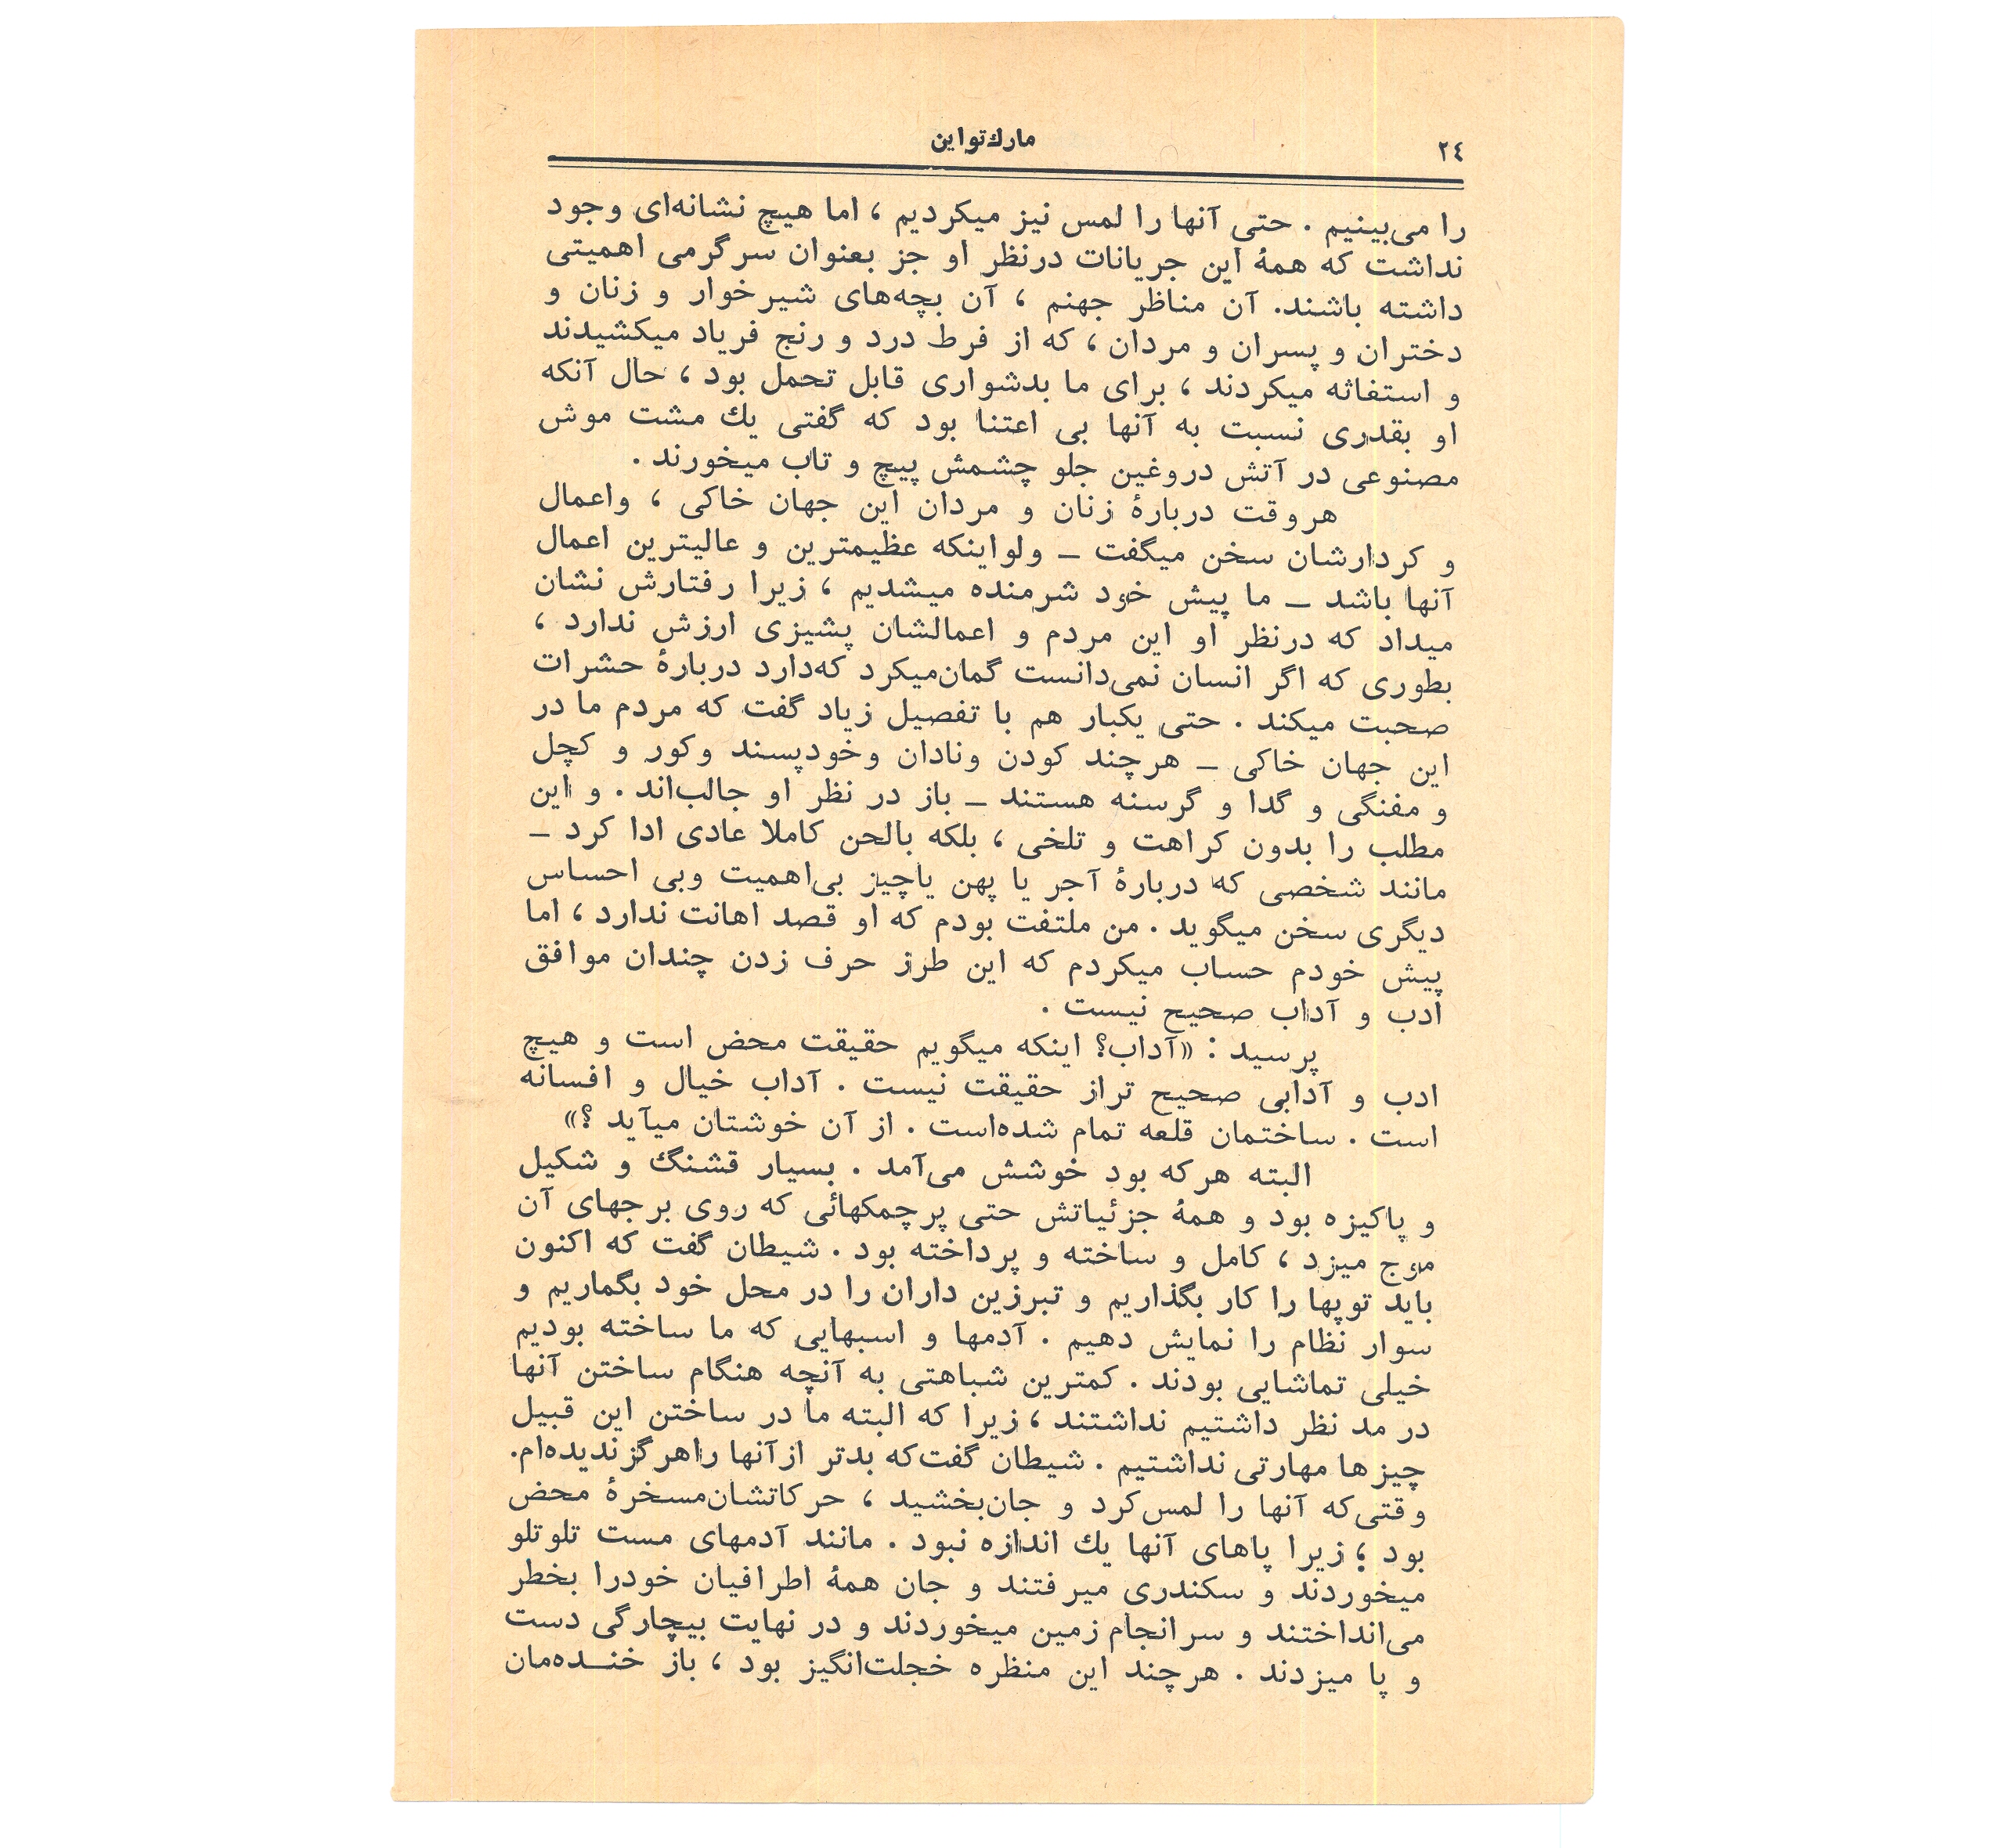 ۲٤
مارك تواین
را می‌بینیم . حتی آنها را لمس نیز میکردیم ، اما هیچ نشانه‌ای وجود
نداشت که همهٔ این جریانات درنظر او جز بعنوان سرگرمی اهمیتی
داشته باشند. آن مناظر جهنم ، آن بچه‌های شیرخوار و زنان و
دختران و پسران و مردان ، که از فرط درد و رنج فریاد میکشیدند
و استغاثه میکردند ، برای ما بدشواری قابل تحمل بود ، حال آنکه
او بقدری نسبت به آنها بی اعتنا بود که گفتی یك مشت موش
مصنوعی در آتش دروغین جلو چشمش پیچ و تاب میخورند .
هروقت دربارهٔ زنان و مردان این جهان خاکی ، واعمال
و کردارشان سخن میگفت – ولواینکه عظیمترین و عالیترین اعمال
آنها باشد – ما پیش خود شرمنده میشدیم ، زیرا رفتارش نشان
میداد که درنظر او این مردم و اعمالشان پشیزی ارزش ندارد ،
بطوری که اگر انسان نمی‌دانست گمان‌میکرد که‌دارد دربارهٔ حشرات
صحبت میکند . حتی یکبار هم با تفصیل زیاد گفت که مردم ما در
این جهان خاکی – هرچند کودن ونادان وخودپسند وکور و کچل
و مفنگی و گدا و گرسنه هستند – باز در نظر او جالب‌اند . و این
مطلب را بدون کراهت و تلخی ، بلکه بالحن کاملا عادی ادا کرد –
مانند شخصی که دربارهٔ آجر یا پهن یاچیز بی‌اهمیت وبی احساس
دیگری سخن میگوید . من ملتفت بودم که او قصد اهانت ندارد ، اما
پیش خودم حساب میکردم که این طرز حرف زدن چندان موافق
ادب و آداب صحیح نیست .
پرسید : «آداب؟ اینکه میگویم حقیقت محض است و هیچ
ادب و آدابی صحیح تراز حقیقت نیست . آداب خیال و افسانه
است . ساختمان قلعه تمام شده‌است . از آن خوشتان میآید ؟»
البته هرکه بود خوشش می‌آمد . بسیار قشنگ و شکیل
و پاکیزه بود و همهٔ جزئیاتش حتی پرچمکهائی که روی برجهای آن
موج میزد ، کامل و ساخته و پرداخته بود . شیطان گفت که اکنون
باید توپها را کار بگذاریم و تبرزین داران را در محل خود بگماریم و
سوار نظام را نمایش دهیم . آدمها و اسبهایی که ما ساخته بودیم
خیلی تماشایی بودند . کمترین شباهتی به آنچه هنگام ساختن آنها
در مد نظر داشتیم نداشتند ، زیرا که البته ما در ساختن این قبیل
چیزها مهارتی نداشتیم . شیطان گفت‌که بدتر ازآنها راهرگزندیده‌ام.
وقتی‌که آنها را لمس‌کرد و جان‌بخشید ، حرکاتشان‌مسخرهٔ محض
بود ؛ زیرا پاهای آنها یك اندازه نبود . مانند آدمهای مست تلوتلو
میخوردند و سکندری میرفتند و جان همهٔ اطرافیان خودرا بخطر
می‌انداختند و سرانجام زمین میخوردند و در نهایت بیچارگی دست
و پا میزدند . هرچند این منظره خجلت‌انگیز بود ، باز خنده‌مان